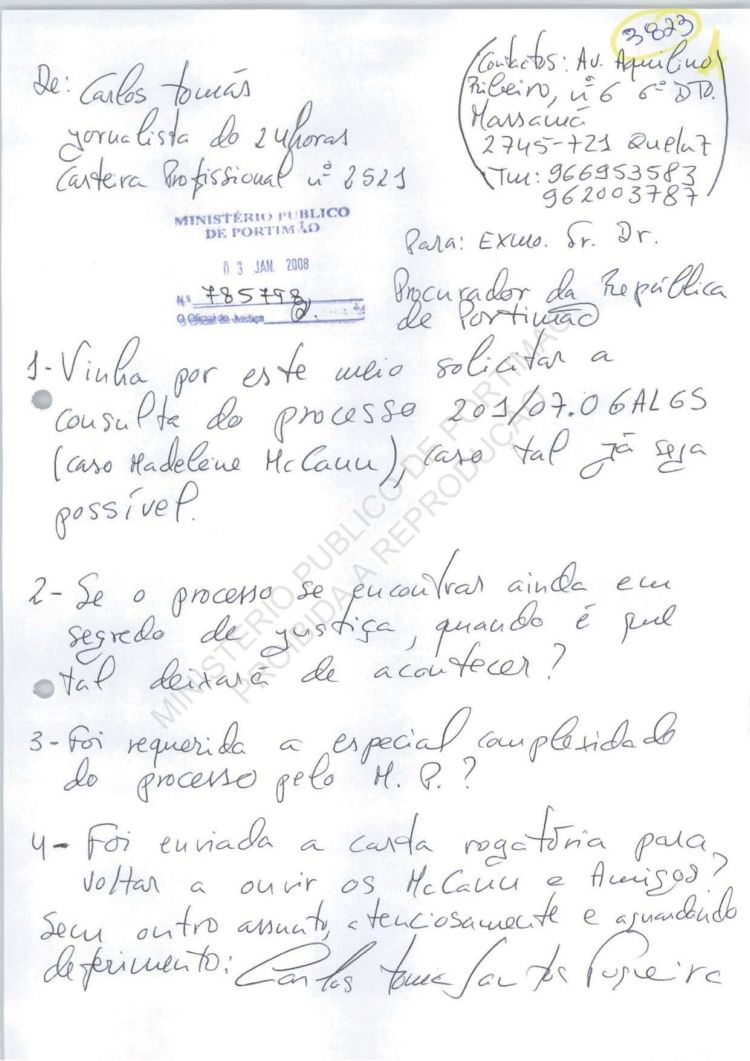 3823
De: Carlos Tomás
jornalista do 24horas
Carteira Profissional nº 2521
(Contactos: Av. Aquilino
Ribeiro, nº 6 6º DTO.
Massamá
2745-721 Queluz
Tm: 966953583
962003787)
MINISTÉRIO PUBLICO
DE PORTIMÃO
03 JAN. 2008
N.º 785798
O Oficial de Justiça
Para: Exmo. Sr. Dr.
Procurador da República
de Portimão
1- Vinha por este meio solicitar a
consulta do processo 201/07.0GALGS
(caso Madeleine McCann), caso tal já seja
possível.
2- Se o processo se encontrar ainda em
segredo de justiça, quando é que
tal deixará de acontecer?
3- Foi requerida a especial complexidade
do processo pelo M. P.?
4- Foi enviada a carta rogatória para
voltar a ouvir os McCann e Amigos?
Sem outro assunto, atenciosamente e aguardando
deferimento: Carlos Tomás Santos
MINISTERIO PUBLICO DE PORTIMAO
PROIBIDA A REPRODUÇÃO